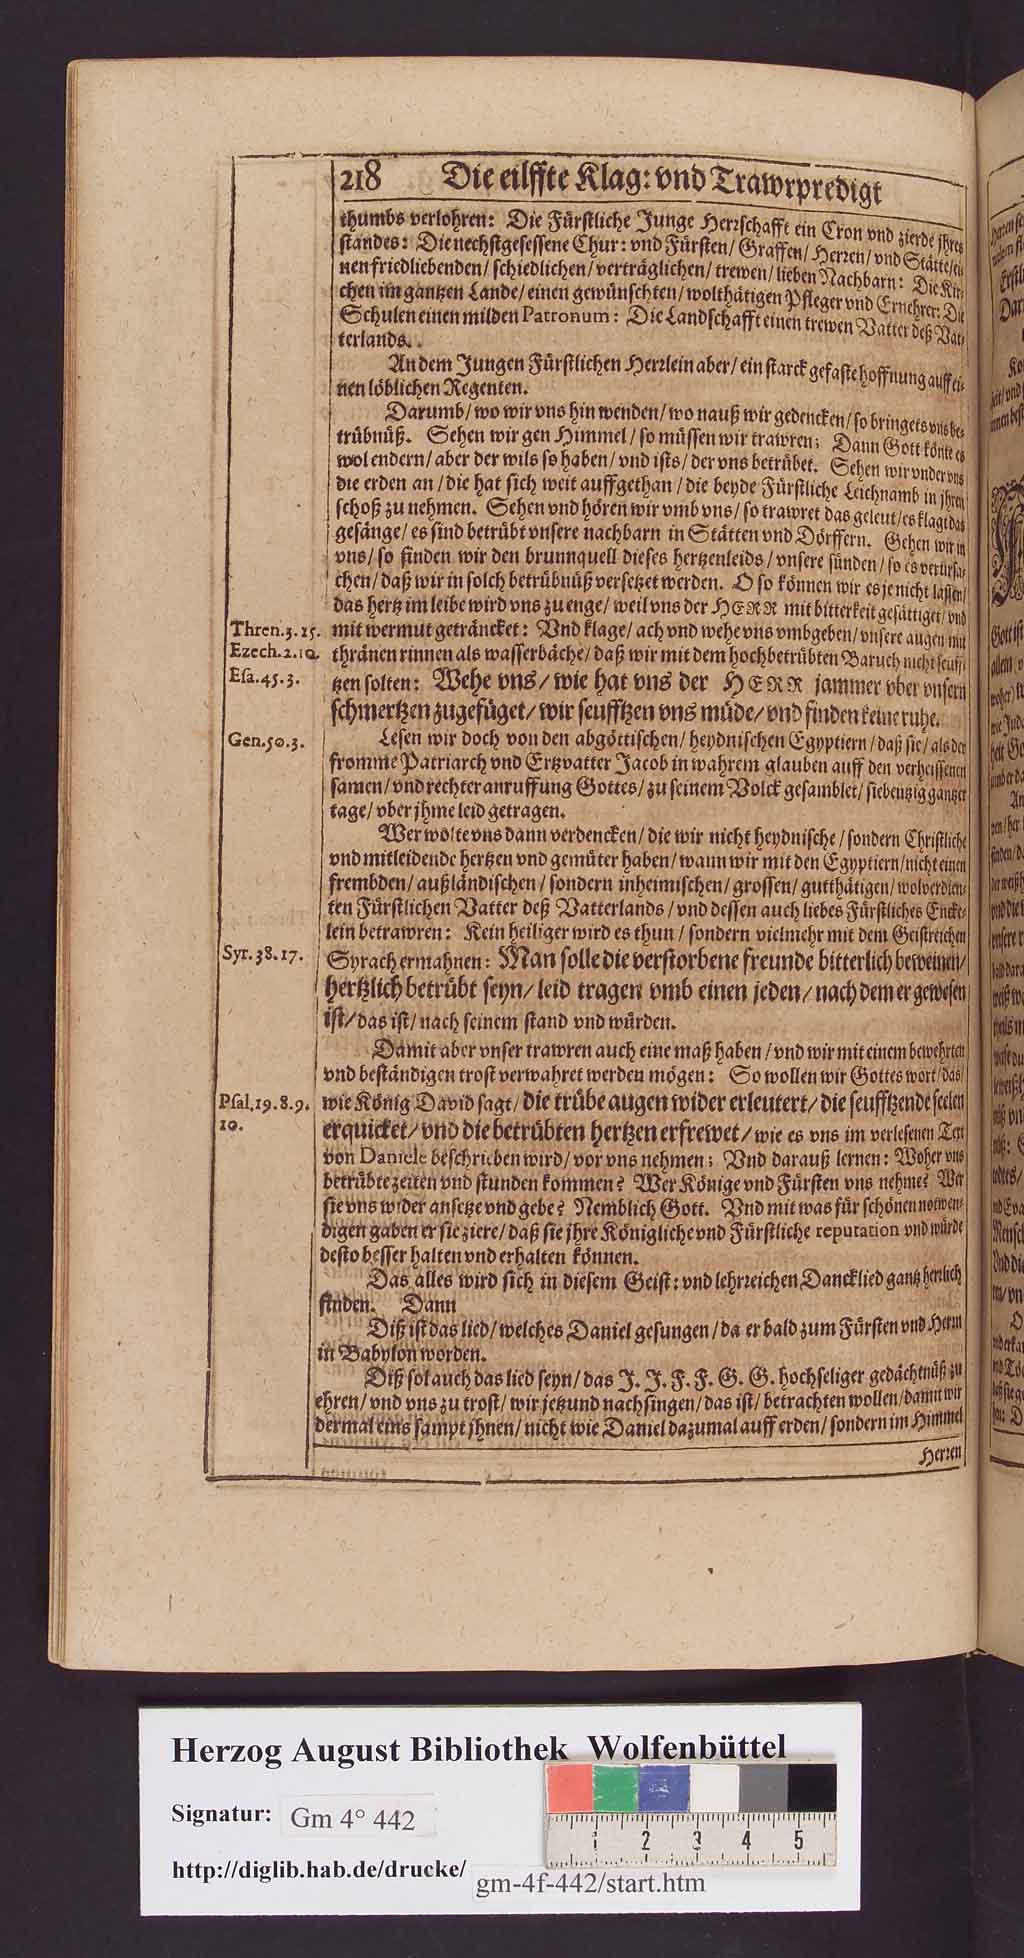 218 Die eilffte Klag: vnd Trawrpredigt
thumbs verlohren: Die Fürstliche Junge Herrschafft ein Cron vnd zierde jhres
standes: Die nechstgesessene Chur: vnd Fürsten/ Graffen/ Herren/ vnd Stätte/ ei-
nen friedliebenden/ schiedlichen/ verträglichen/ trewen/ lieben Nachbarn: Die Kir-
chen im gantzen Lande/ einen gewünschten/ wolthätigen Pfleger vnd Ernehrer: Die
Schulen einen milden Patronum: Die Landschafft einen trewen Vatter deß Vat-
terlands.
An dem Jungen Fürstlichen Herrlein aber/ ein starck gefaste hoffnung auff ei-
nen löblichen Regenten.
Darumb/ wo wir vns hin wenden/ wo nauß wir gedencken/ so bringets vns be-
trübnüß. Sehen wir gen Himmel/ so müssen wir trawren; Dann Gott könte es
wol endern/ aber der wils so haben/ vnd ists/ der vns betrübet. Sehen wir vnder vns
die erden an/ die hat sich weit auffgethan/ die beyde Fürstliche Leichnamb in jhren
schoß zu nehmen. Sehen vnd hören wir vmb vns/ so trawret das geleut/ es klagt das
gesänge/ es sind betrübt vnsere nachbarn in Stätten vnd Dörffern. Gehen wir in
vns/ so finden wir den brunnquell dieses hertzenleids/ vnsere sünden/ so es verursa-
chen/ daß wir in solch betrübnüß versetzet werden. O so können wir es je nicht lassen/
das hertz im leibe wird vns zu enge/ weil vns der HERR mit bitterkeit gesättiget/ vnd
Thren.3.15. mit wermut geträncket: Vnd klage/ ach vnd wehe vns vmbgeben/ vnsere augen mit
Ezech.2.10. thränen rinnen als wasserbäche/ daß wir mit dem hochbetrübten Baruch nicht seuff-
Esa.45.3. tzen solten: Wehe vns/ wie hat vns der HERR jammer vber vnsern
schmertzen zugefüget/ wir seufftzen vns müde/ vnd finden keine ruhe.
Gen.50.3. Lesen wir doch von den abgöttischen/ heydnischen Egyptiern/ daß sie/ als der
fromme Patriarch vnd Ertzvatter Jacob in wahrem glauben auff den verheissenen
samen/ vnd rechter anruffung Gottes/ zu seinem Volck gesamblet/ siebentzig gantzer
tage/ vber jhme leid getragen.
Wer wolte vns dann verdencken/ die wir nicht heydnische/ sondern Christliche
vnd mitleidende hertzen vnd gemüter haben/ wann wir mit den Egyptiern/ nicht einen
frembden/ außländischen/ sondern inheimischen/ grossen/ gutthätigen/ wolverdien-
ten Fürstlichen Vatter deß Vatterlands/ vnd dessen auch liebes Fürstliches Enckc-
lein betrawren: Kein heiliger wird es thun/ sondern vielmehr mit dem Geistreichen
Syr.38.17. Syrach ermahnen: Man solle die verstorbene freunde bitterlich beweinen/
hertzlich betrübt seyn/ leid tragen vmb einen jeden/ nach dem er gewesen
ist/ das ist/ nach seinem stand vnd würden.
Damit aber vnser trawren auch eine maß haben/ vnd wir mit einem bewehrten
vnd beständigen trost verwahret werden mögen: So wollen wir Gottes wort/ das/
Psal.19.8.9. wie König David sagt/ die trübe augen wider erleutert/ die seufftzende seelen
10. erquicket/ vnd die betrübten hertzen erfrewet/ wie es vns im verlesenen Text
von Daniele beschrieben wird/ vor vns nehmen; Vnd darauß lernen: Woher vns
betrübte zeiten vnd stunden kommen? Wer Könige vnd Fürsten vns nehme? Wer
sie vns wider ansetze vnd gebe? Nemblich Gott. Vnd mit was für schönen notwen-
digen gaben er sie ziere/ daß sie jhre Königliche vnd Fürstliche reputation vnd würde
desto besser halten vnd erhalten können.
Das alles wird sich in diesem Geist: vnd lehrreichen Dancklied gantz herrlich
finden. Dann
Diß ist das lied/ welches Daniel gesungen/ da er bald zum Fürsten vnd Herrn
in Babylon worden.
Diß sol auch das lied seyn/ das J. J. F. F. G. G. hochseliger gedächtnüß zu
ehren/ vnd vns zu trost/ wir jetzund nachsingen/ das ist/ betrachten wollen/ damit wir
dermal eins sampt jhnen/ nicht wie Daniel dazumal auff erden/ sondern im Himmel
Herren
Herzog August Bibliothek Wolfenbüttel
Signatur: Gm 4° 442
http://diglib.hab.de/drucke/ gm-4f-442/start.htm
1 2 3 4 5